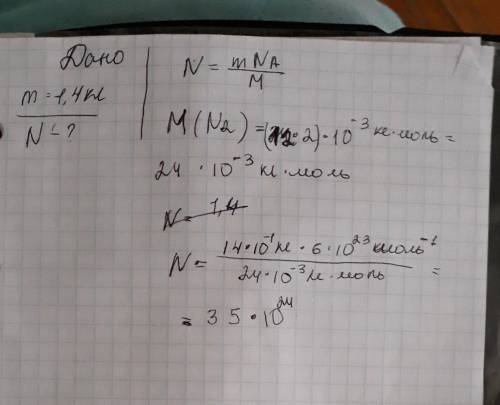 Дано
m = 1,4 кг
N = ?
N = mNA / M
M(N2) = (12·2)·10⁻³ кг·моль =
24 · 10⁻³ кг·моль
N = 1,4
N = 14·10⁻¹кг · 6·10²³ моль⁻¹ / 24·10⁻³кг·моль =
= 35·10²⁴